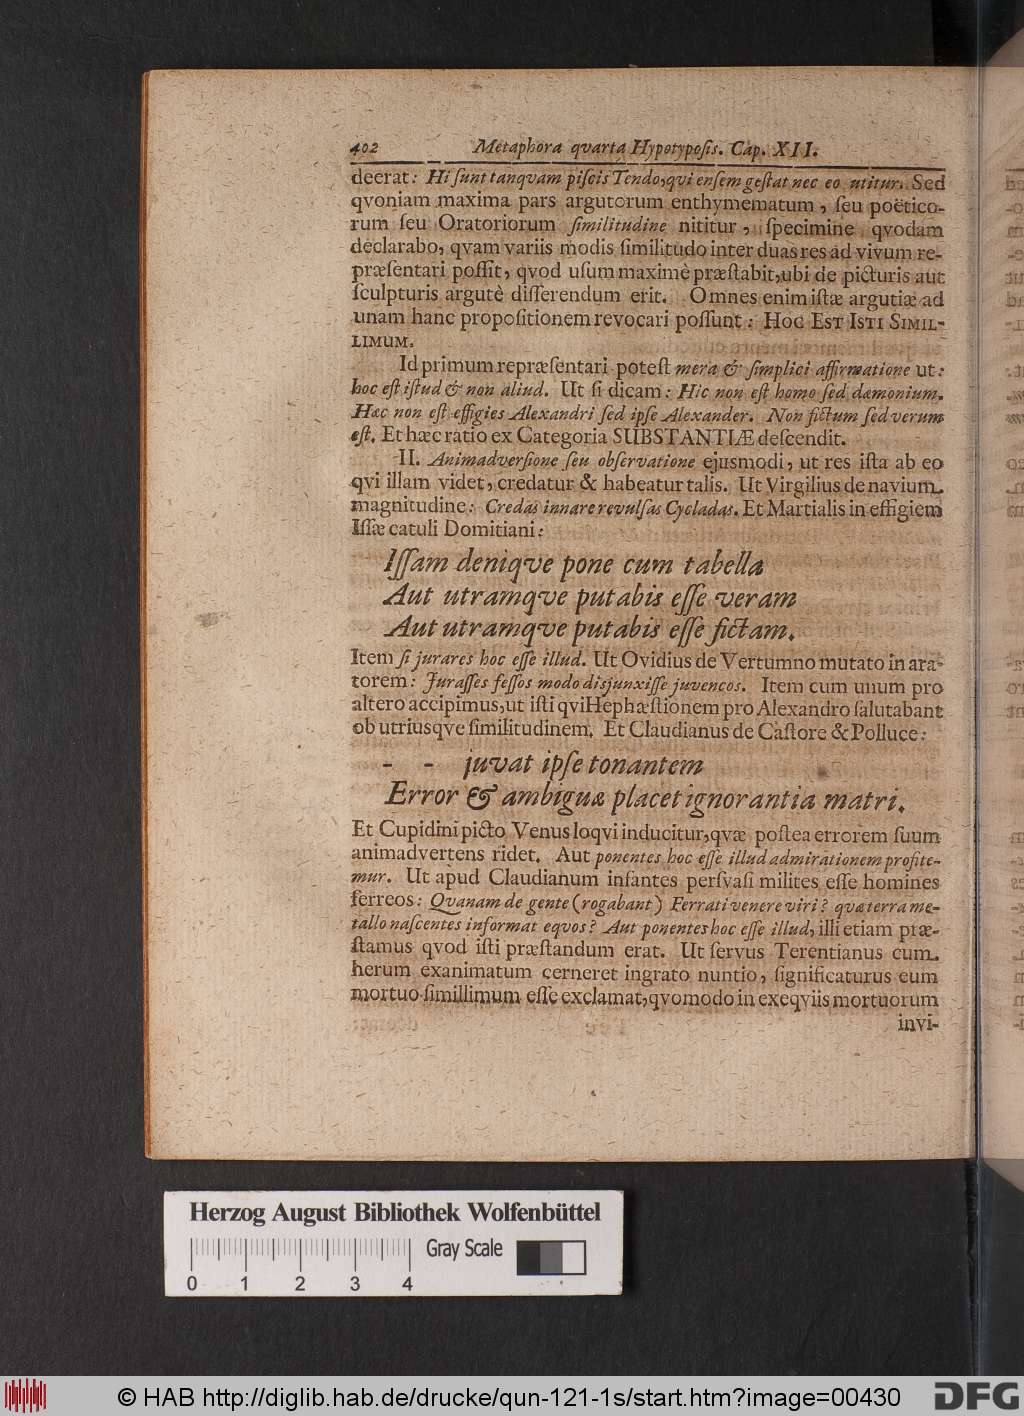 402 Metaphora qvarta Hypotyposis. Cap. XII.
deerat: Hi ſunt tanqvam piſcis Tendo, qui enſem geſtat nec eo utitur. Sed
qvoniam maxima pars argutorum enthymematum, ſeu poëtico-
rum ſeu Oratoriorum ſimilitudine nititur, ſpecimine qvodam
declarabo, qvam variis modis ſimilitudo inter duas res ad vivum re-
præſentari poſſit, qvod uſum maximè præſtabit, ubi de picturis aut
ſculpturis argutè diſſerendum erit. Omnes enim iſtæ argutiæ ad
unam hanc propoſitionem revocari poſſunt: HOC EST ISTI SIMIL-
LIMUM.
Id primum repræſentari poteſt mera & ſimplici affirmatione ut:
hoc eſt iſtud & non aliud. Ut ſi dicam: Hic non eſt homo ſed dæmonium.
Hæc non eſt effigies Alexandri ſed ipſe Alexander. Non fictum ſed verum
eſt. Et hæc ratio ex Categoria SUBSTANTIÆ deſcendit.
II. Animadverſione ſeu obſervatione ejusmodi, ut res iſta ab eo
qvi illam videt, credatur & habeatur talis. Ut Virgilius de navium
magnitudine: Credas innare revulſas Cycladas. Et Martialis in effigiem
Iſſæ catuli Domitiani:
Iſſam deniqve pone cum tabella
Aut utramqve putabis eſſe veram
Aut utramqve putabis eſſe fictam.
Item ſi jurares hoc eſſe illud. Ut Ovidius de Vertumno mutato in ara-
torem: Juraſſes feſſos modo disjunxiſſe juvencos. Item cum unum pro
altero accipimus, ut iſti qvi Hephæſtionem pro Alexandro ſalutabant
ob utriusqve ſimilitudinem. Et Claudianus de Caſtore & Polluce:
- - juvat ipſe tonantem
Error & ambiguæ placet ignorantia matri.
Et Cupidini picto Venus loqvi inducitur, qvæ poſtea errorem ſuum
animadvertens ridet. Aut ponentes hoc eſſe illud admirationem profite-
mur. Ut apud Claudianum infantes perſvaſi milites eſſe homines
ferreos: Qvanam de gente (rogabant) Ferrati venere viri? quæ terra me-
tallo naſcentes informat eqvos? Aut ponentes hoc eſſe illud, illi etiam præ-
ſtamus qvod iſti præſtandum erat. Ut ſervus Terentianus cum
herum exanimatum cerneret ingrato nuntio, ſignificaturus eum
mortuo ſimillimum eſſe exclamat, qvomodo in exeqviis mortuorum
invi-
Herzog August Bibliothek Wolfenbüttel
Gray Scale
0 1 2 3 4
© HAB http://diglib.hab.de/drucke/qun-121-1s/start.htm?image=00430
DFG